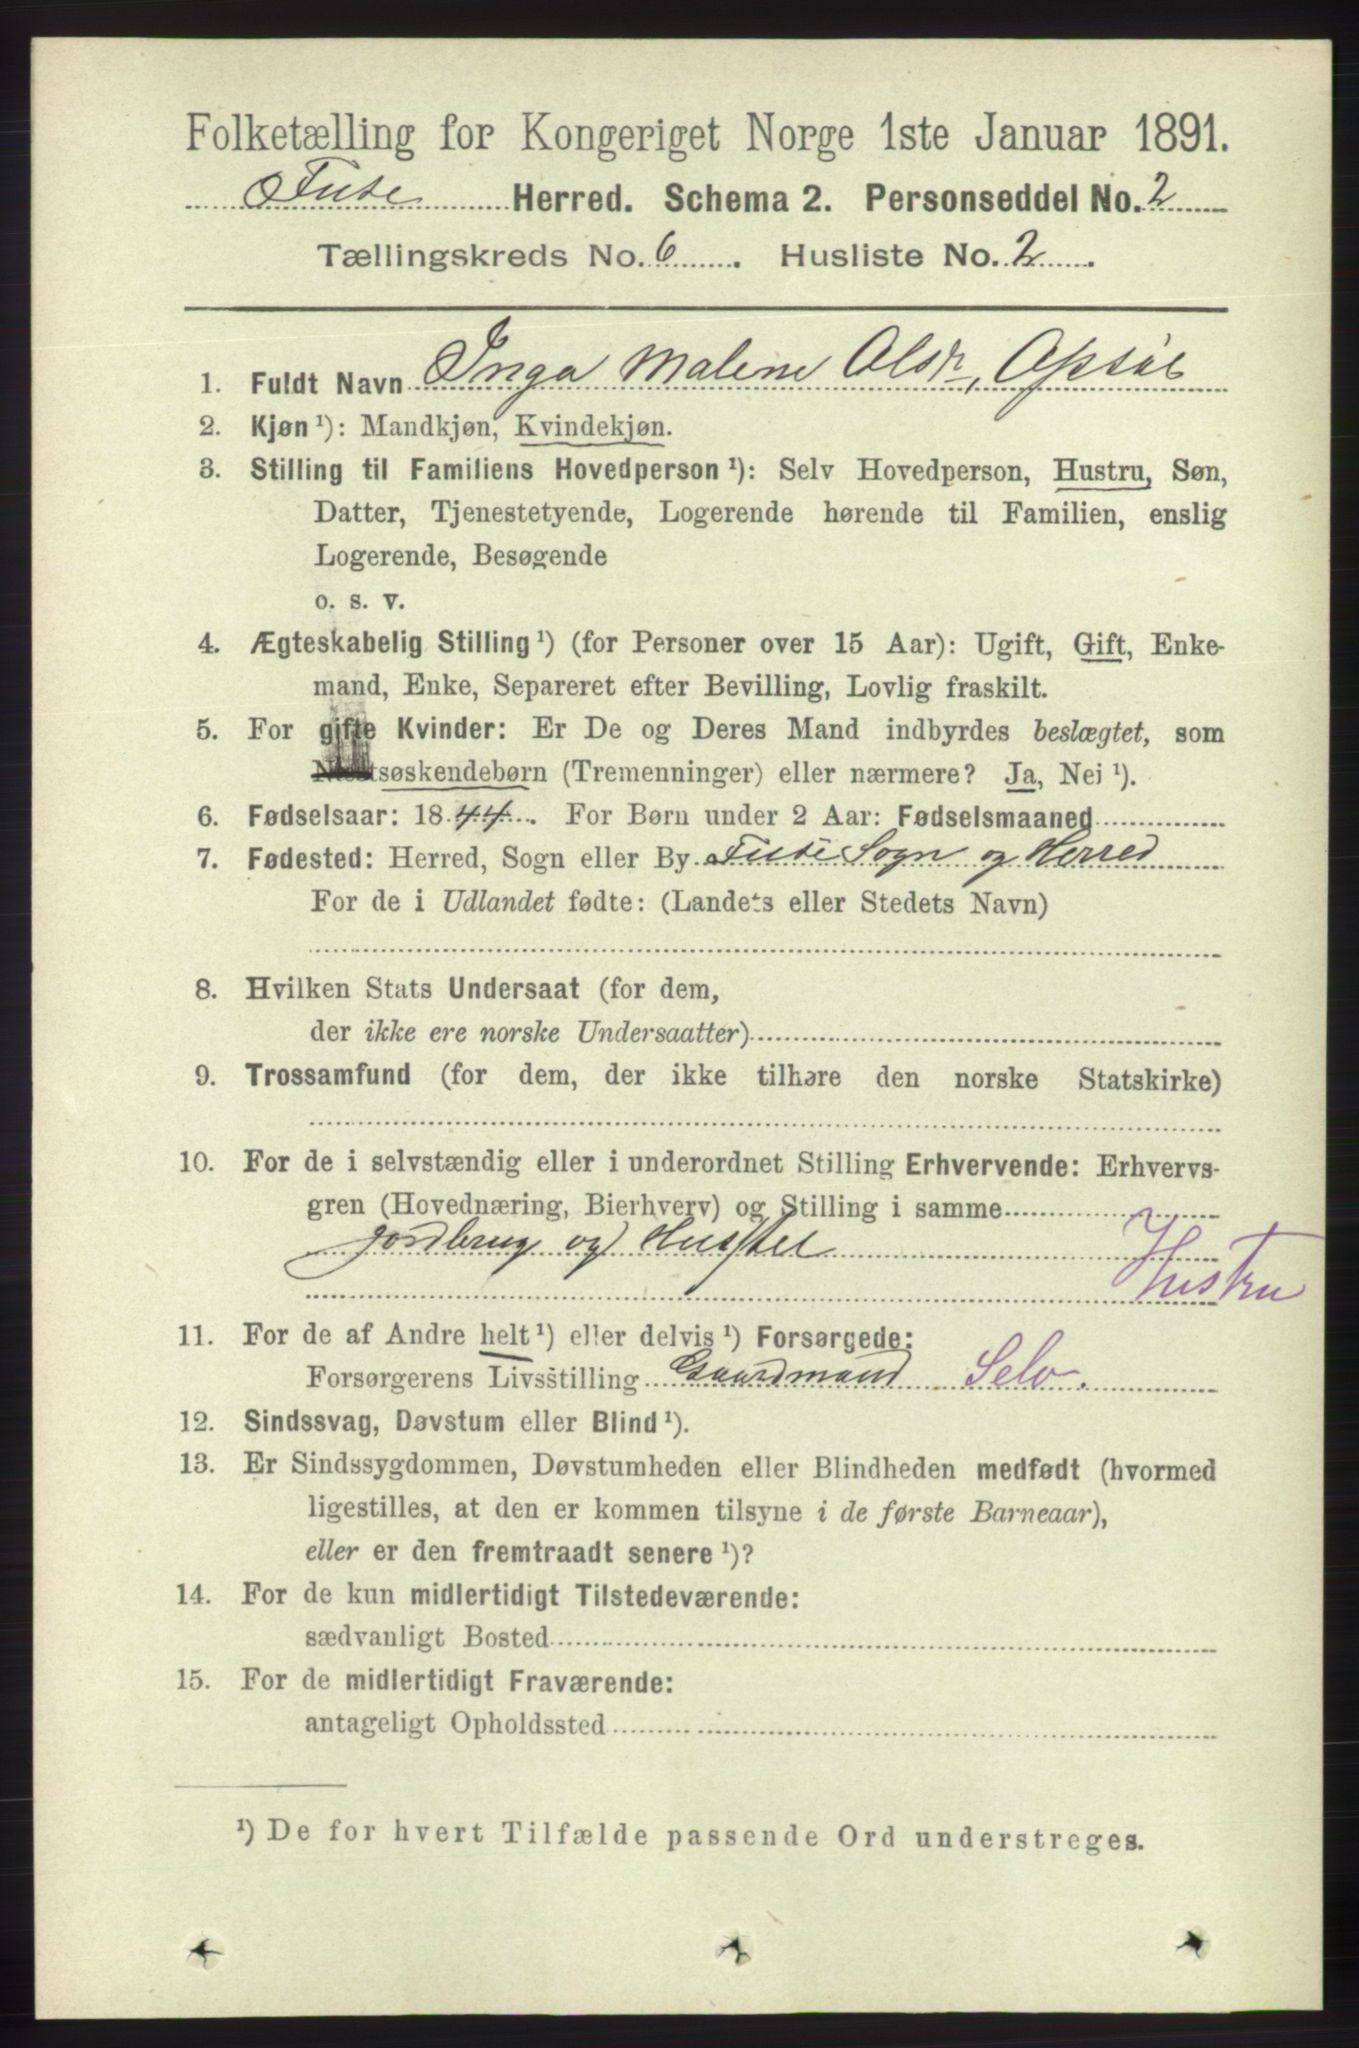 Folketælling for Kongeriget Norge 1ste Januar 1891.
Fuse Herred. Schema 2. Personseddel No. 2
Tællingskreds No. 6. Husliste No. 2.
1. Fuldt Navn Inga Malene Olsdr,
2. Kjøn ¹): Mandkjøn, Kvindekjøn.
3. Stilling til Familiens Hovedperson ¹): Selv Hovedperson, Hustru, Søn,
Datter, Tjenestetyende, Logerende hørende til Familien, enslig
Logerende, Besøgende
o. s. v.
4. Ægteskabelig Stilling ¹) (for Personer over 15 Aar): Ugift, Gift, Enke-
mand, Enke, Separeret efter Bevilling, Lovlig fraskilt.
5. For gifte Kvinder: Er De og Deres Mand indbyrdes beslægtet, som
Næstsøskendebørn (Tremenninger) eller nærmere? Ja, Nei ¹).
6. Fødselsaar: 1844. For Børn under 2 Aar: Fødselsmaaned
7. Fødested: Herred, Sogn eller By Fuse Sogn og Herred
For de i Udlandet fødte: (Landets eller Stedets Navn)
8. Hvilken Stats Undersaat (for dem,
der ikke ere norske Undersaatter)
9. Trossamfund (for dem, der ikke tilhøre den norske Statskirke)
10. For de i selvstændig eller i underordnet Stilling Erhvervende: Erhvervs-
gren (Hovednæring, Bierhverv) og Stilling i samme
jordbrug og Husstel Hustru
11. For de af Andre helt ¹) eller delvis ¹) Forsørgede:
Forsørgerens Livsstilling Gaardmand Selv.
12. Sindssvag, Døvstum eller Blind ¹).
13. Er Sindssygdommen, Døvstumheden eller Blindheden medfødt (hvormed
ligestilles, at den er kommen tilsyne i de første Barneaar),
eller er den fremtraadt senere ¹)?
14. For de kun midlertidigt Tilstedeværende:
sædvanligt Bosted
15. For de midlertidigt Fraværende:
antageligt Opholdssted
¹) De for hvert Tilfælde passende Ord understreges.